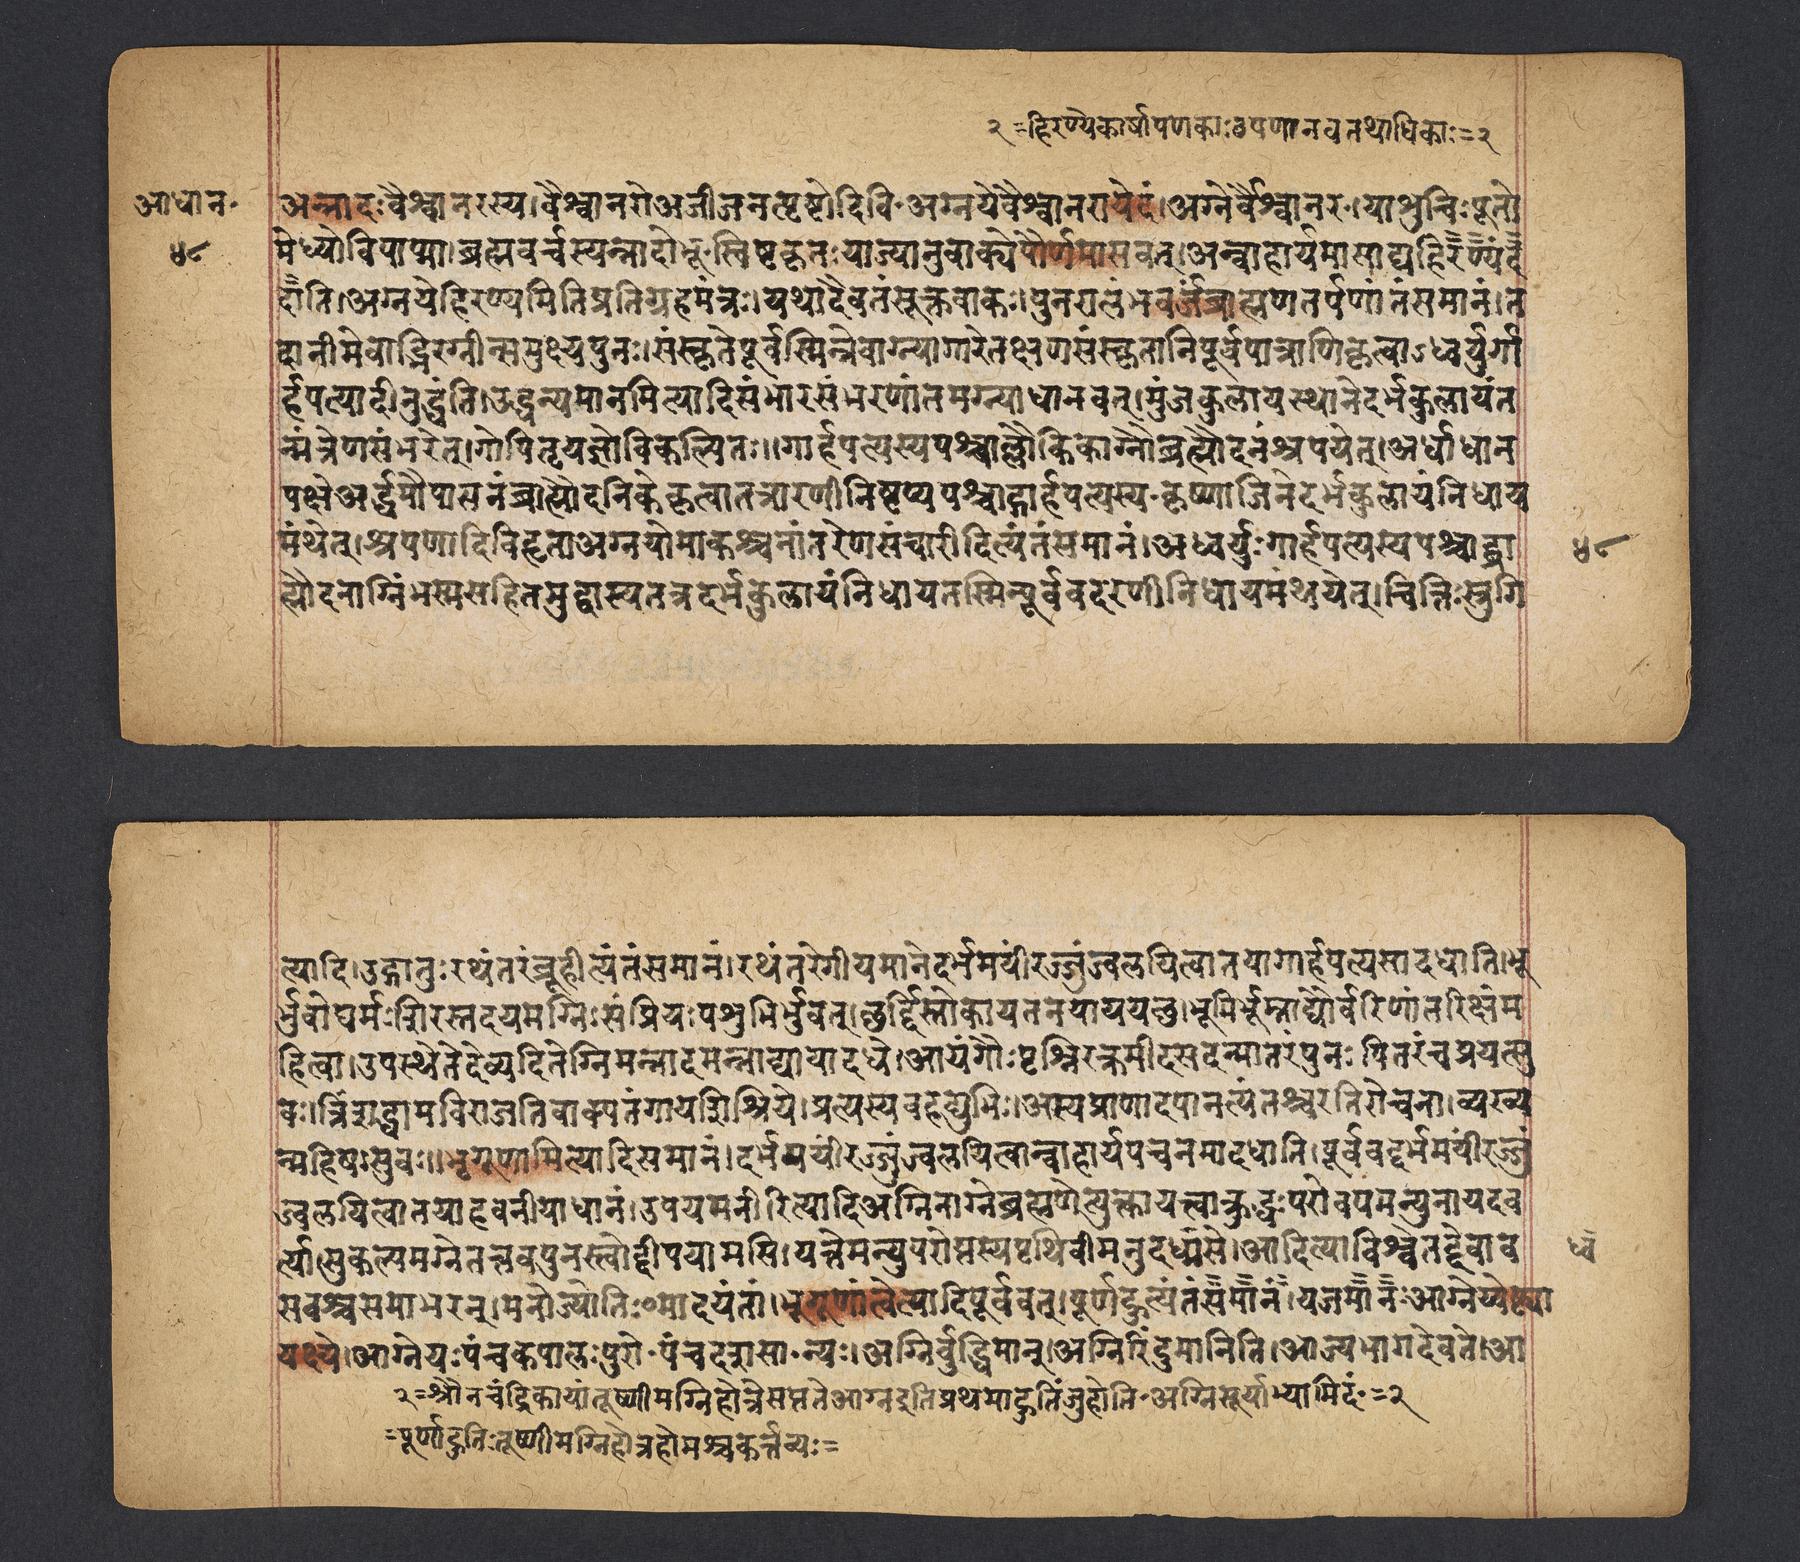 २ =हिरण्येकार्षापणकाः७पणानवतथाधिकाः=२
आधान॰
अन्नादःवैश्वानरस्य।वैश्वानरोअजीजनत्पृष्टोदिवि॰अग्नयेवैश्वानरायेदं।अग्नेर्वैश्वानर॰।याशुचिःपूतो
४८
मेध्योविपाप्मा।ब्रह्मवर्चस्यन्नादोभू॰स्विष्टकृतःयाज्यानुवाक्येपौर्णमासवत्।अन्वाहार्यमासाद्यहिरण्यंद
दाति।अग्नयेहिरण्यमितिप्रतिग्रहमंत्रः।यथादैवतंसूक्तवाकः।पुनरालंभवर्जंब्राह्मणतर्पणांतंसमानं।त
दानीमेवाद्भिरग्नीन्समुक्ष्यपुनः।संस्कृतेपूर्वस्मिन्नेवाग्न्यागारेतक्ष्णसंस्कृतानिपूर्वपात्राणिकृत्वाऽध्वर्युर्गा
र्हपत्यादीनुद्धंति।उद्धन्यमानमित्यादिसंभारसंभरणांतमग्न्याधानवत्।मुंजकुलायस्थानेदर्भकुलायंत
न्मंत्रेणसंभरेत्।गोपितृयज्ञोविकल्पितः॥गार्हपत्यस्यपश्चाल्लौकिकाग्नौब्रह्मौदनंश्रपयेत्।अर्धाधान
पक्षेअर्द्धमौपासनंब्राह्मौदनिकंकृत्वातत्रारणीनिष्टप्यपश्चाद्गार्हपत्यस्य॰कृष्णाजिनेदर्भकुलायंनिधाय
मंथेत्।श्रपणादिविहृताअग्नयोमाकश्चनांतरेणसंचारीदित्यंतंसमानं।अध्वर्युःगार्हपत्यस्यपश्चाद्ब्रा
४८
ह्मौदनाग्निंभस्मसहितमुद्वास्यतत्रदर्भकुलायंनिधायतस्मिन्पूर्ववदरणीनिधायमंथयेत्।चित्तिःस्रुगि
त्यादि।उद्गातुःरथंतरंब्रूहीत्यंतंसमानं।रथंतरेगीयमानेदर्भमयींरज्जुंज्वलयित्वातयागार्हपत्यसादधाति।भू
र्भुवोघर्मःशिरस्तदयमग्निःसंप्रियःपशुभिर्भुवत्।छर्द्दिस्तोकायतनयाययच्छ।भूमिर्भूम्नाद्यौर्वरिणांतरिक्षंम
हित्वा।उपस्थेतेदेव्यदितेग्निमन्नादमन्नाद्यायादधे।आयंगौःपृश्निरक्रमीदसदन्मातरंपुनःपितरंचप्रयत्सु
वः।त्रिंशद्धामविराजतिवाक्पतंगायशिश्रिये।प्रत्यस्यवहद्युभिः।अस्यप्राणादपानत्यंतश्चरतिरोचना।व्यख्य
न्महिषःसुवः॥भृगूणामित्यादिसमानं।दर्भमयींरज्जुंज्वलयित्वान्वाहार्यपचनमादधाति।पूर्ववद्दर्भमयींरज्जुं
ज्वलयित्वातयाहवनीयाधानं।उपयमनीरित्यादिअग्निनाग्नेब्रह्मणेत्युक्तायत्त्वाक्रुद्धःपरोवपमन्युनायदव
र्त्या।सुकल्पमग्नेतत्तवपुनस्त्वोद्दीपयामसि।यत्तेमन्युपरोप्तस्यपृथिवीमनुदध्वसे।आदित्याविश्वेतद्देवाव
ध्वं
सवश्चसमाभरन्।मनोज्योतिः॰मादयंतां।भृगूणांत्वेत्यादिपूर्ववत्।पूर्णाहुत्यंतंसमानं।यजमानः॰आग्नेय्येष्ट्या
यक्ष्ये।आग्नेयःपंचकपालःपुरो॰पंचदशसा॰न्यः।अग्निर्वुद्धिमान्।अग्निरिंदुमानिति।आज्यभागदेवते।आ
२=श्रौनचंद्रिकायांतूष्णीमग्निहोत्रेसप्ततेआग्नइतिप्रथमाहुतिंजुहोति॰अग्निसूर्याभ्यामिदं॰=२
=पूर्णाहुतिःतूष्णीमग्निहोत्रहोमश्चकर्त्तव्यः=